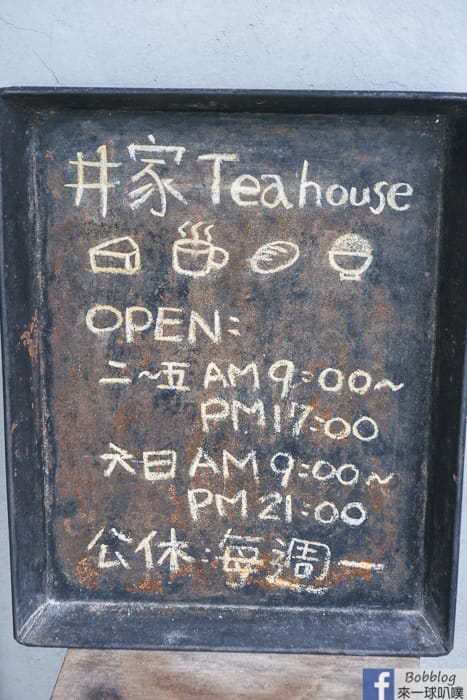 井家 Teahouse
OPEN:
二~五 AM 9:00~
PM 17:00
六日 AM 9:00~
PM 21:00
公休:每週一
f Bobblog
來一球叭噗